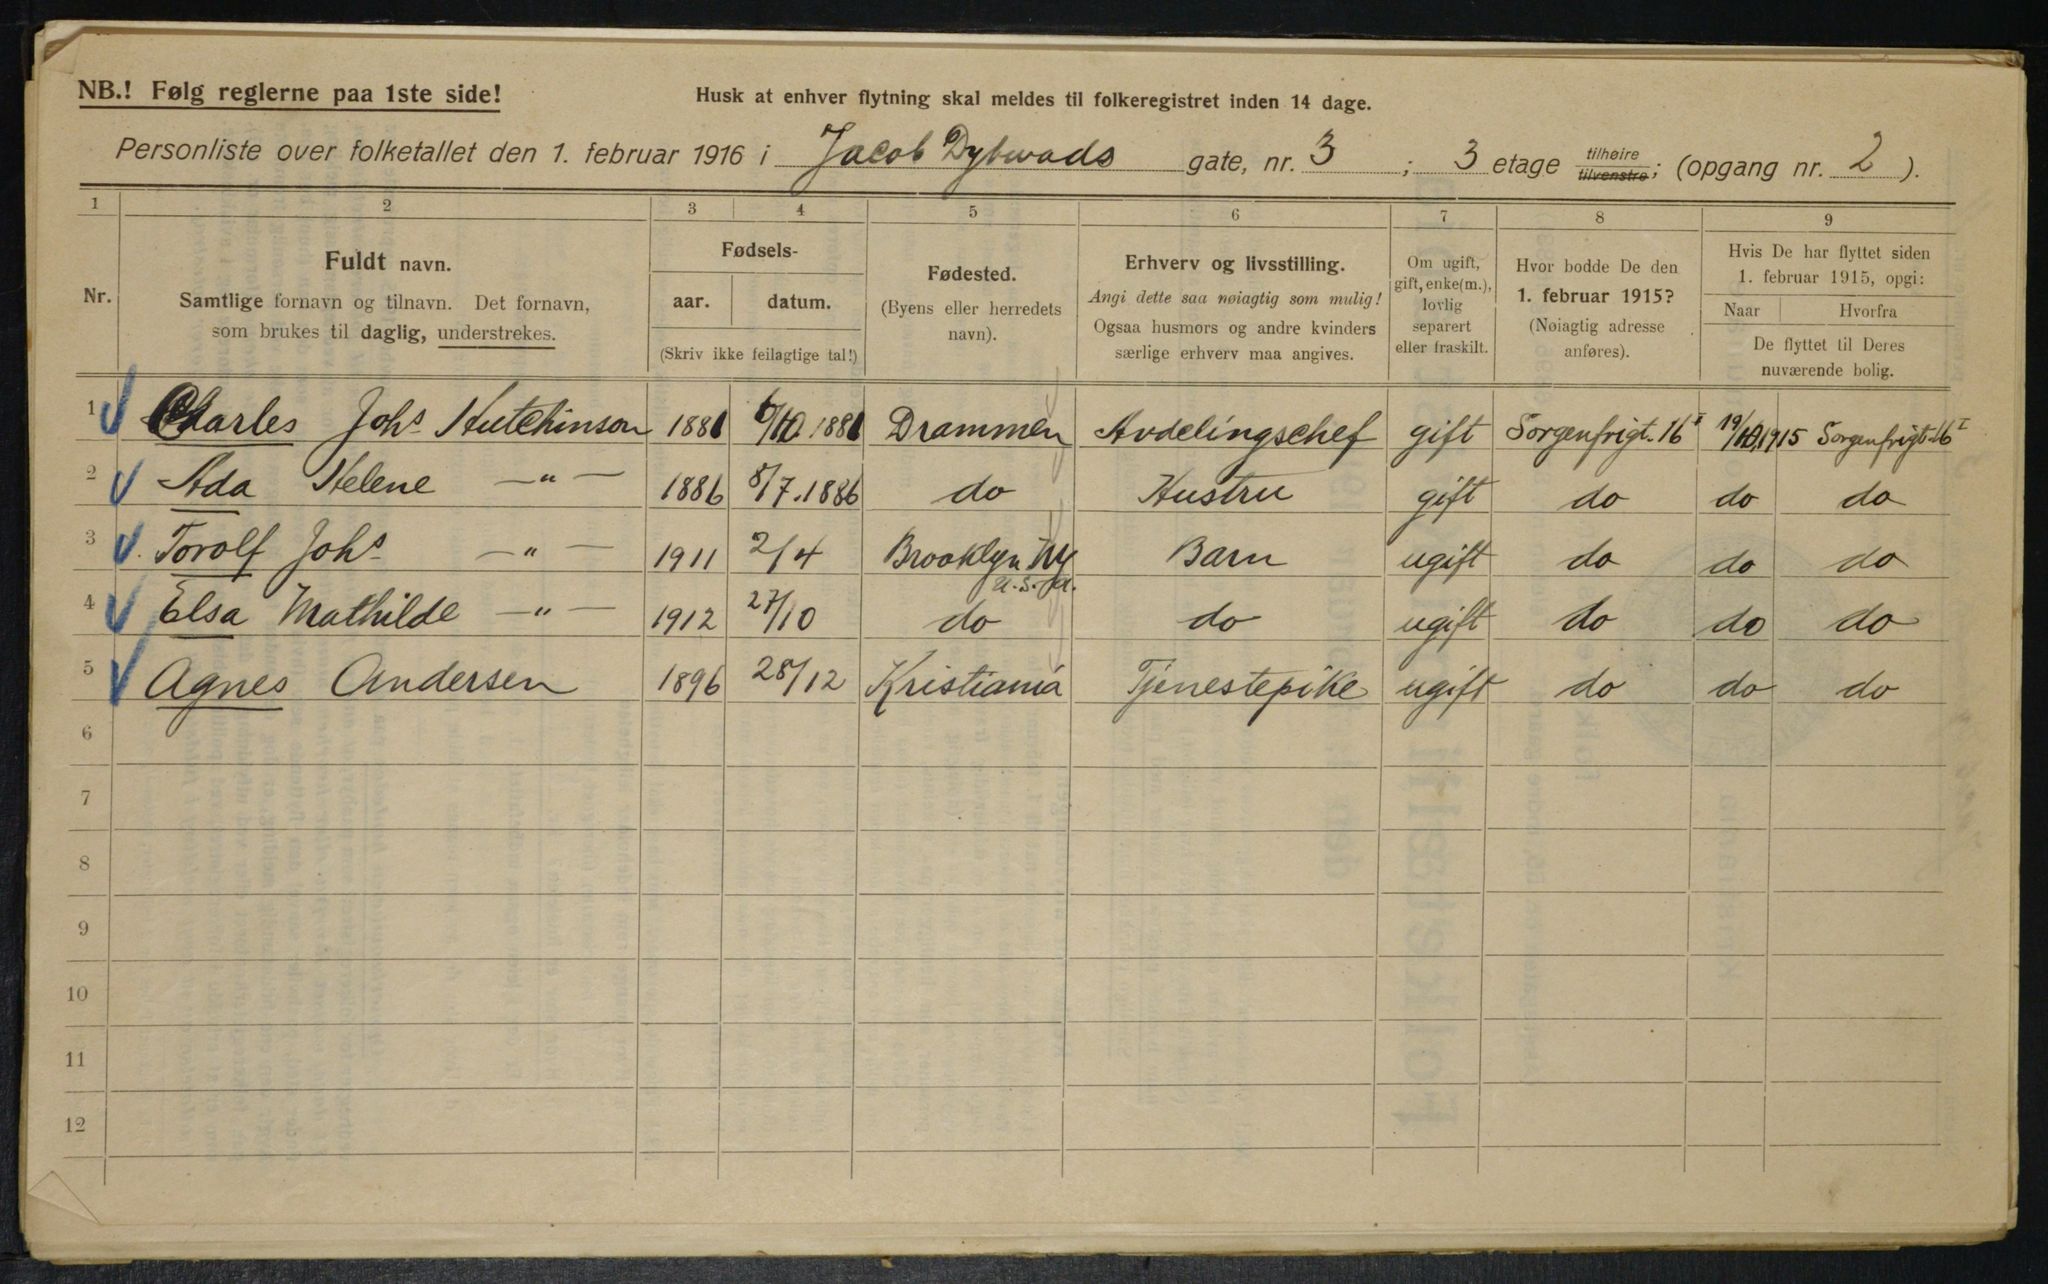 NB.! Følg reglerne paa 1ste side!
Husk at enhver flytning skal meldes til folkeregistret inden 14 dage.
Personliste over folketallet den 1. februar 1916 i Jacob Dybwads gate, nr. 3 ; 3 etage tilhøire tilvenstre; (opgang nr. 2 ).
1 2 3 4 5 6 7 8 9
Nr.
Fuldt navn.
Samtlige fornavn og tilnavn. Det fornavn,
som brukes til daglig, understrekes.
Fødsels-
aar. datum.
(Skriv ikke feilagtige tal!)
Fødested.
(Byens eller herredets
navn).
Erhverv og livsstilling.
Angi dette saa nøiagtig som mulig!
Ogsaa husmors og andre kvinders
særlige erhverv maa angives.
Om ugift,
gift, enke(m.),
lovlig
separert
eller fraskilt.
Hvor bodde De den
1. februar 1915?
(Nøiagtig adresse
anføres).
Hvis De har flyttet siden
1. februar 1915, opgi:
Naar Hvorfra
De flyttet til Deres
nuværende bolig.
1 Charles Johs Hutchinson 1881 6/10.1881 Drammen Avdelingschef gift Sorgenfrigt. 16 I 19/10.1915 Sorgenfrigt. 16 I
2 Ada Helene —"— 1886 8/7.1886 do Hustru gift do do do
3 Torolf Johs —"— 1911 2/4 Brooklyn NY U.S.A. Barn ugift do do do
4 Elsa Mathilde —"— 1912 27/10 do do ugift do do do
5 Agnes Andersen 1896 28/12 Kristiania Tjenestepike ugift do do do
6
7
8
9
10
11
12